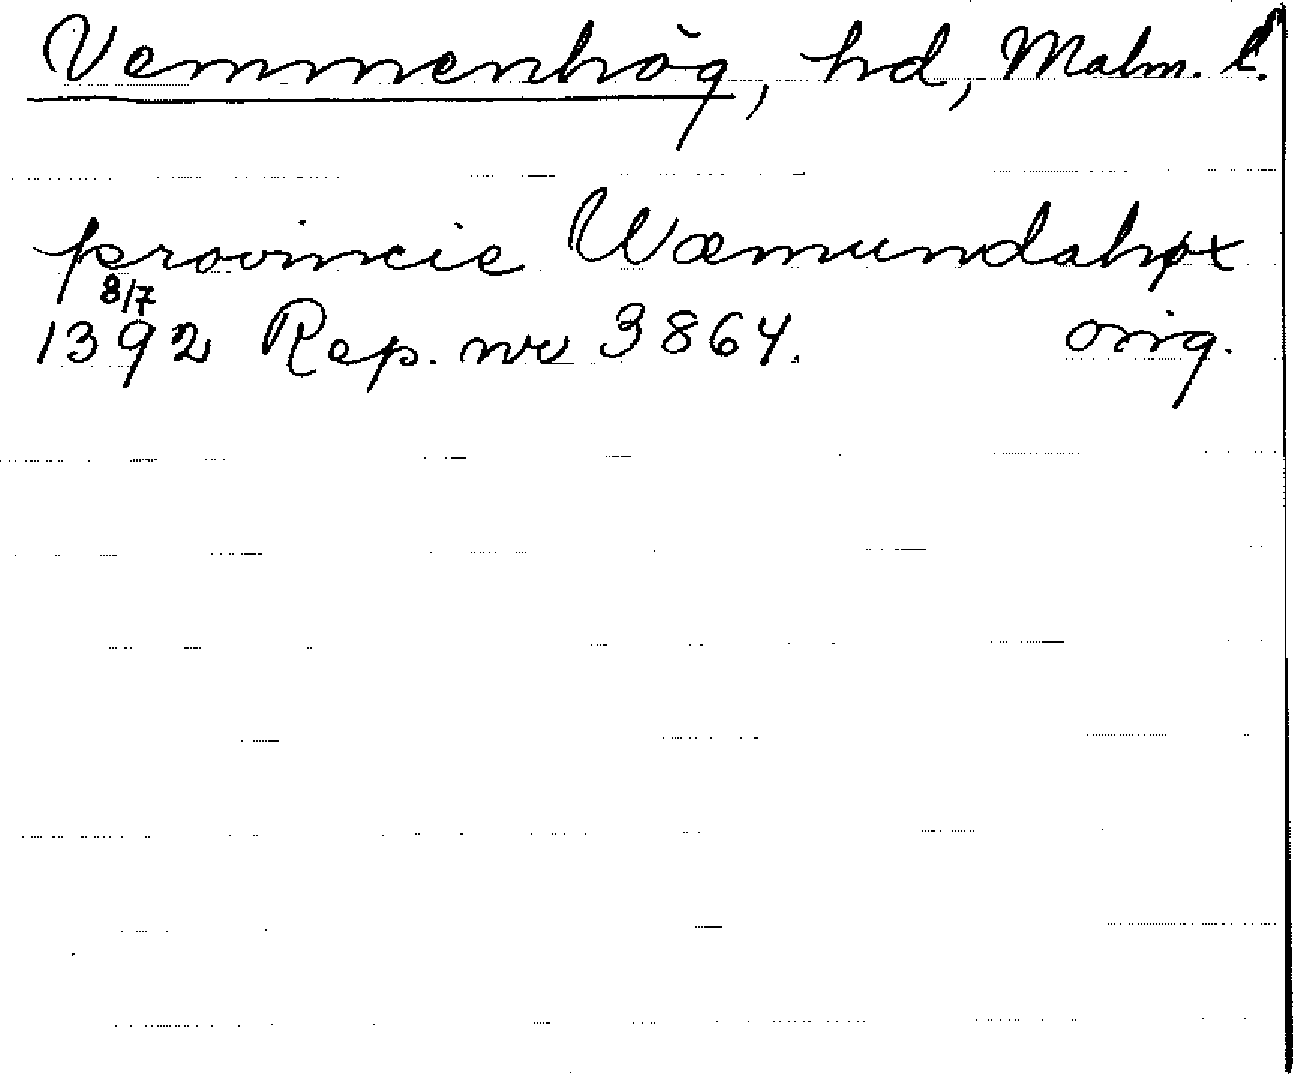 Vemmenhög, hd, Malm. l.
provincie Wæmundahøx
8/7
1392 Rep. nr 3864. orig.